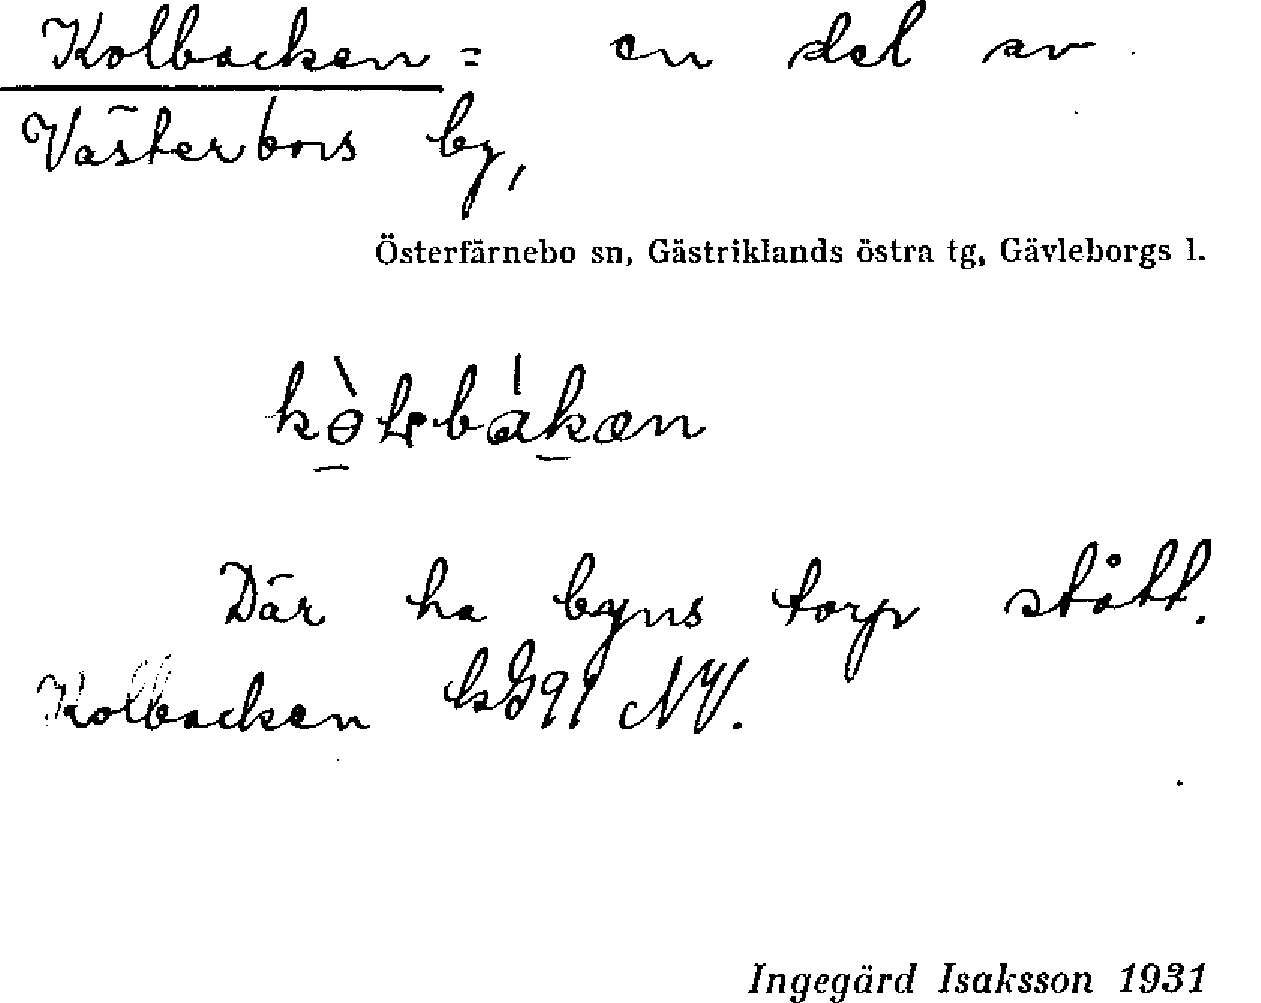 Kolbacken = en del av
Västerbors by,
Österfärnebo sn, Gästriklands östra tg, Gävleborgs l.
Där ha byns torp stått.
Kolbacken NV.
Ingegärd Isaksson 1931